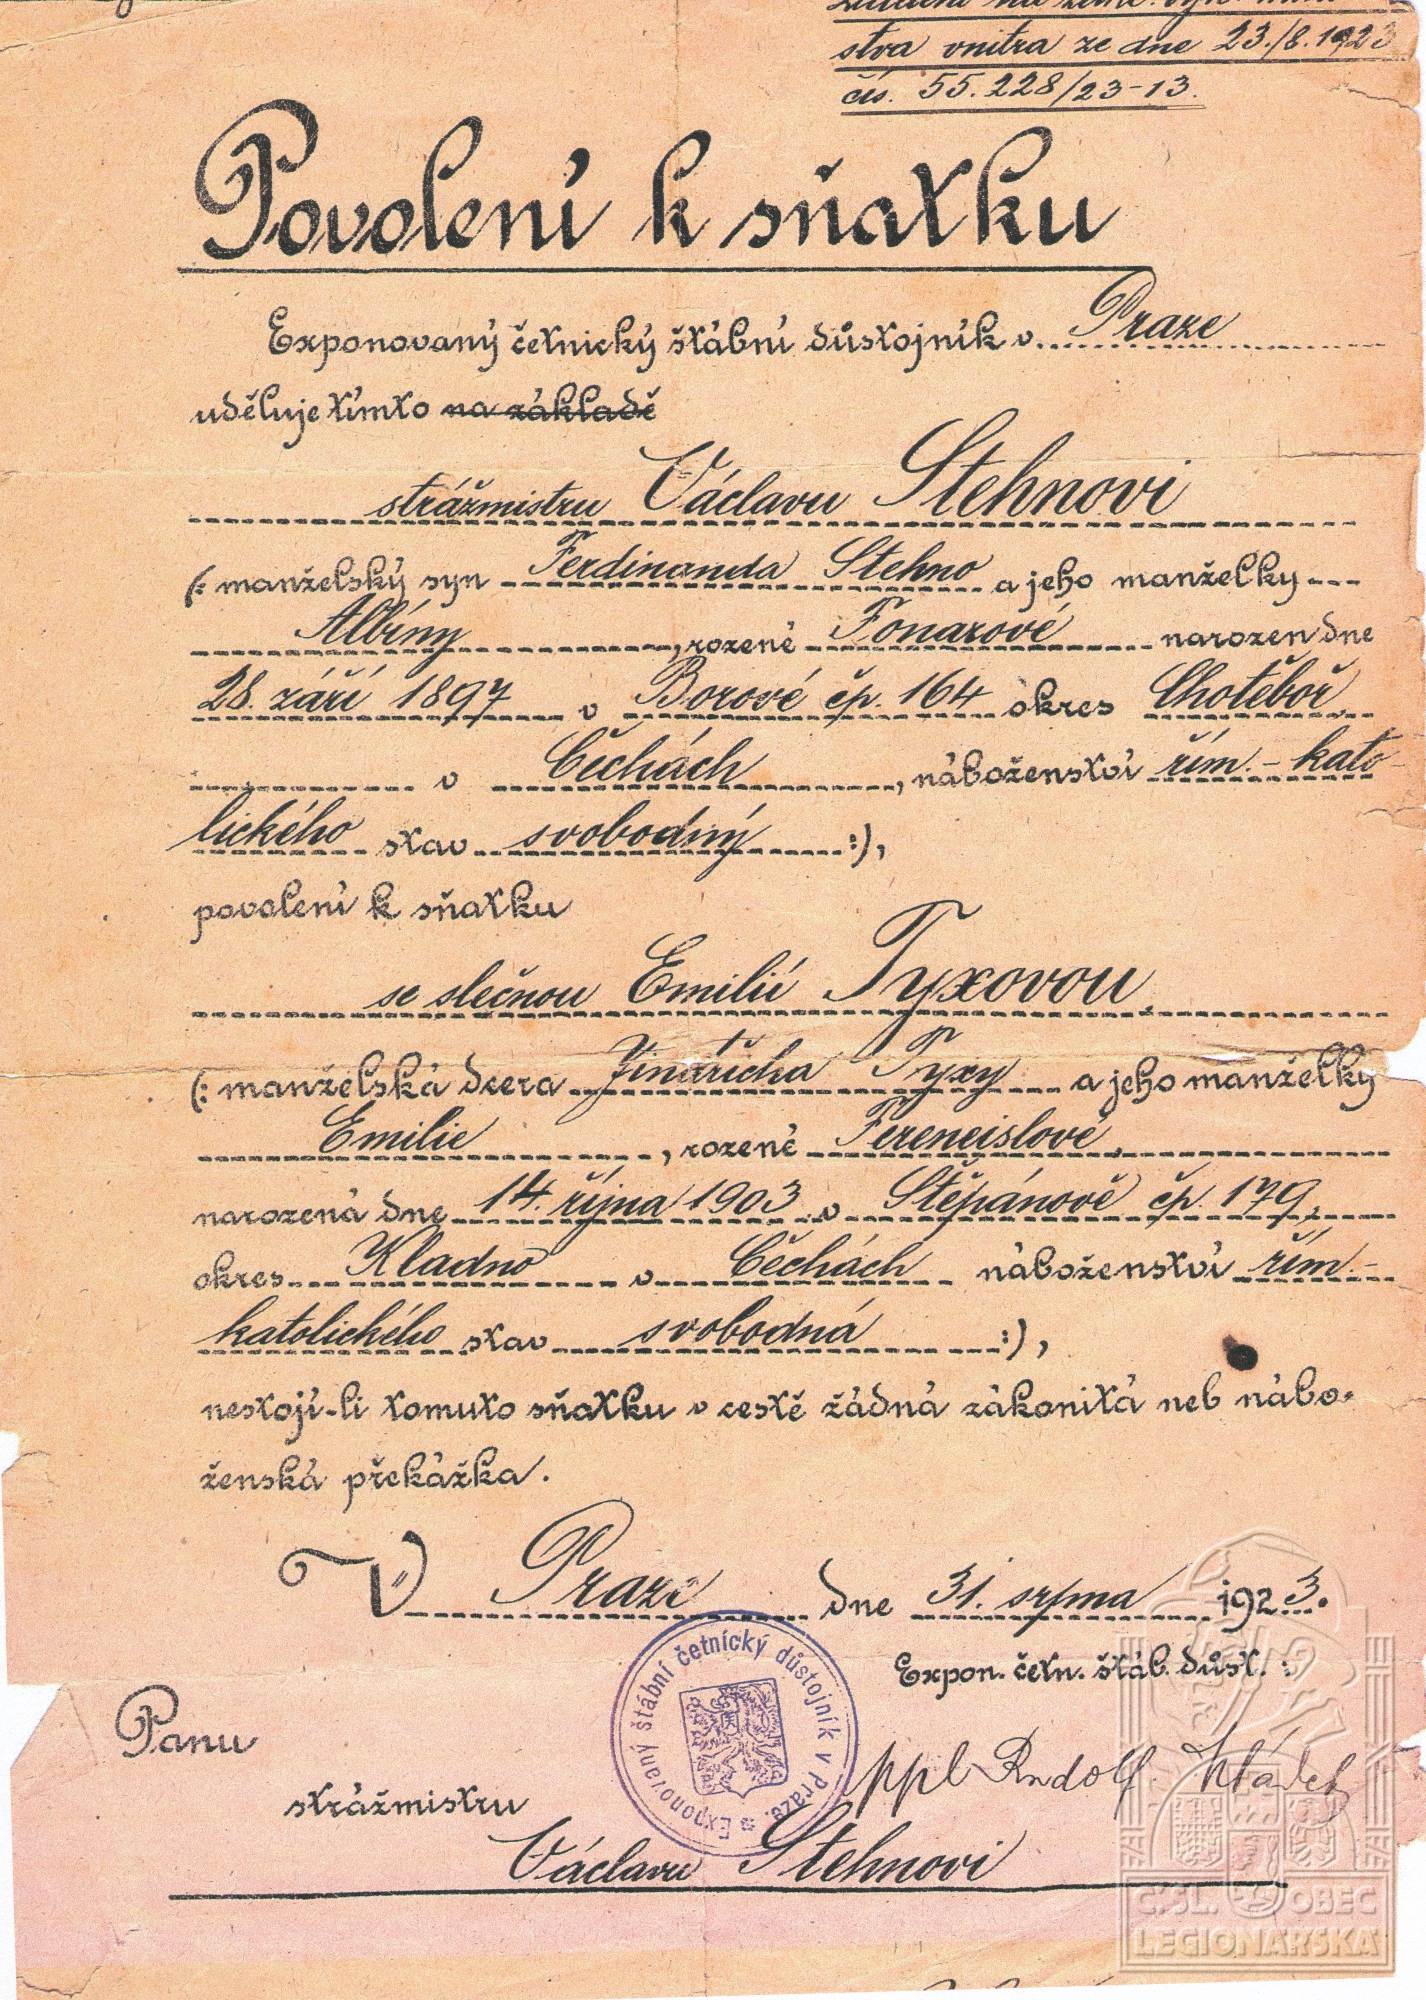 stva vnitra ze dne 23./8. 1923
čís. 55.228/23-13.
Povolení k sňatku
Exponovaný četnický štábní důstojník v Praze
uděluje tímto na základě
strážmistru Václavu Stehnovi
(: manželský syn Ferdinanda Stehno a jeho manželky
Albíny, rozené Fonarové narozen dne
28. září 1897 v Borové čp. 164 okres Chotěboř,
v Čechách, náboženství řím.-kato-
lického stav svobodný :),
povolení k sňatku
se slečnou Emilií Tyxovou,
(: manželská dcera Jindřicha Tyxy a jeho manželky
Emilie, rozené Fereneislové,
narozená dne 14. října 1903 v Štěpánově čp. 179,
okres Kladno v Čechách náboženství řím.-
katolického stav svobodná :),
nestojí-li tomuto sňatku v cestě žádná zákonitá neb nábo-
ženská překážka.
V Praze dne 31. srpna 1923.
Expon. četn. štáb. důst.:
Exponovaný štábní četnický důstojník v Praze.
ppl Rudolf Hládek
Panu
strážmistru
Václavu Stehnovi
Č.SL. OBEC
LEGIONÁŘSKÁ